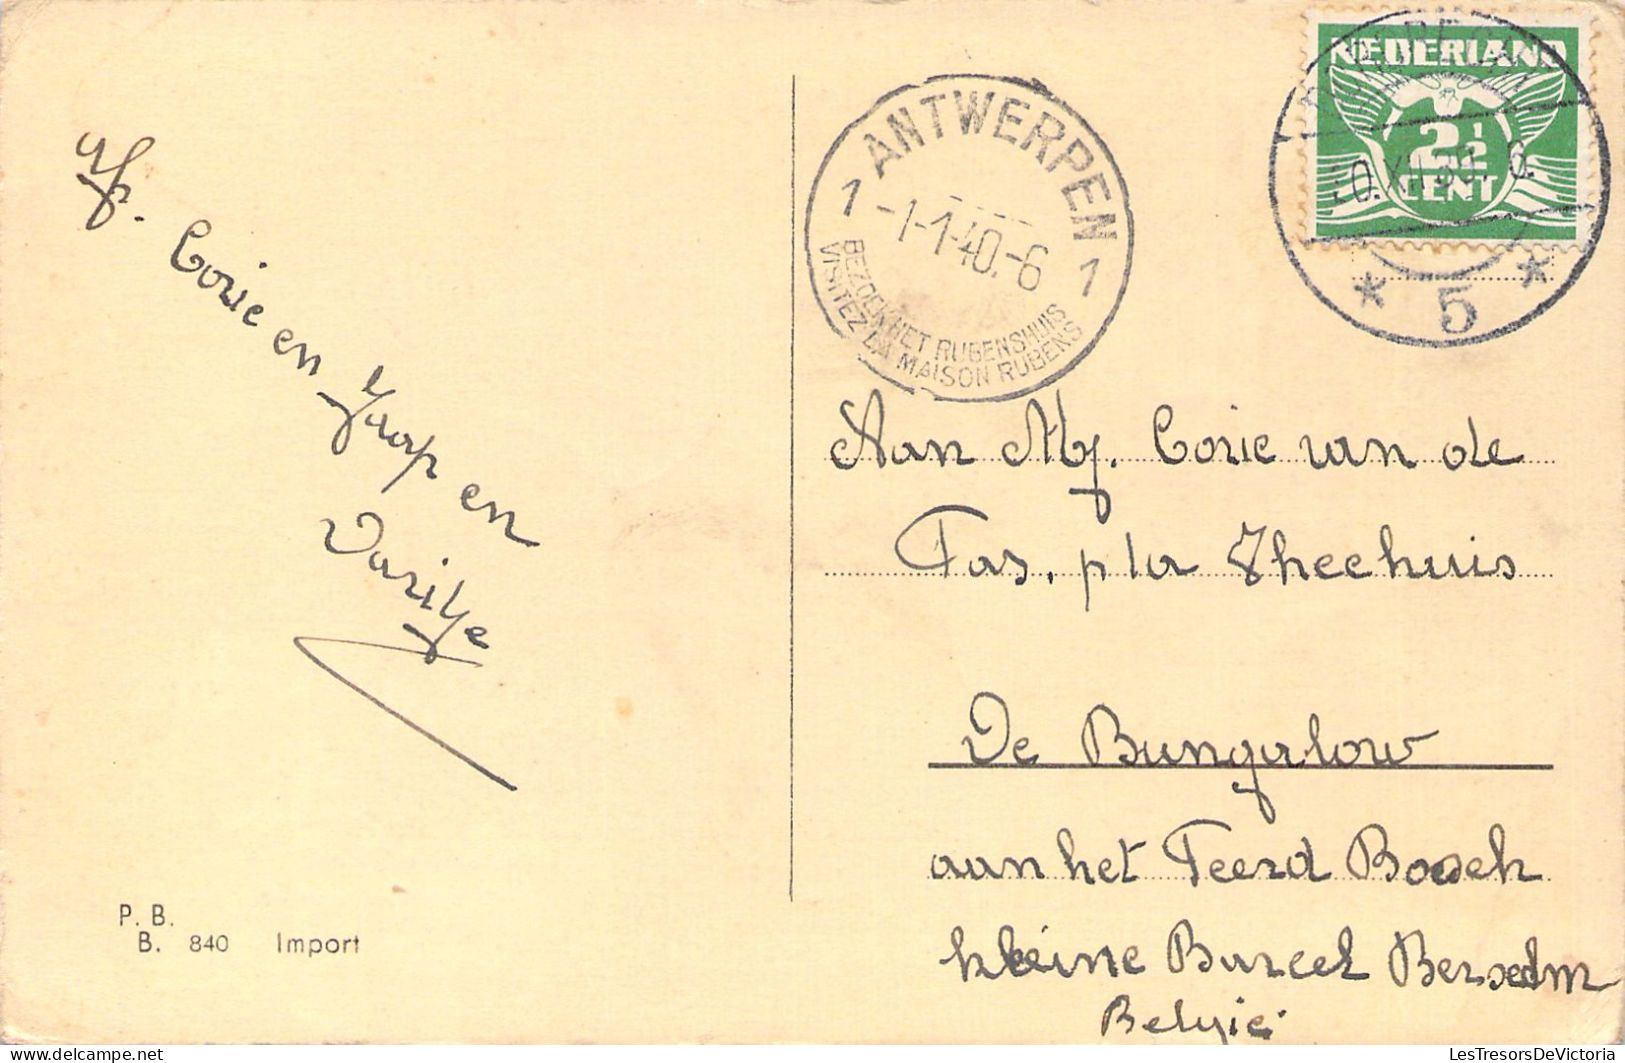 Af. Corie en Jaap en
P. B.
B. 840 Import
ANTWERPEN
1 -1-1-40.-6 1
BEZOEK HET RUBENSHUIS
VISITEZ LA MAISON RUBENS
NEDERLAND
2½
CENT
5
Aan Mej. Corie van de
Fas, p/a Theehuis
De Bungalow
aan het Teerd Bosch
kleine Bareel
België.
LesTresorsDeVictoria.com